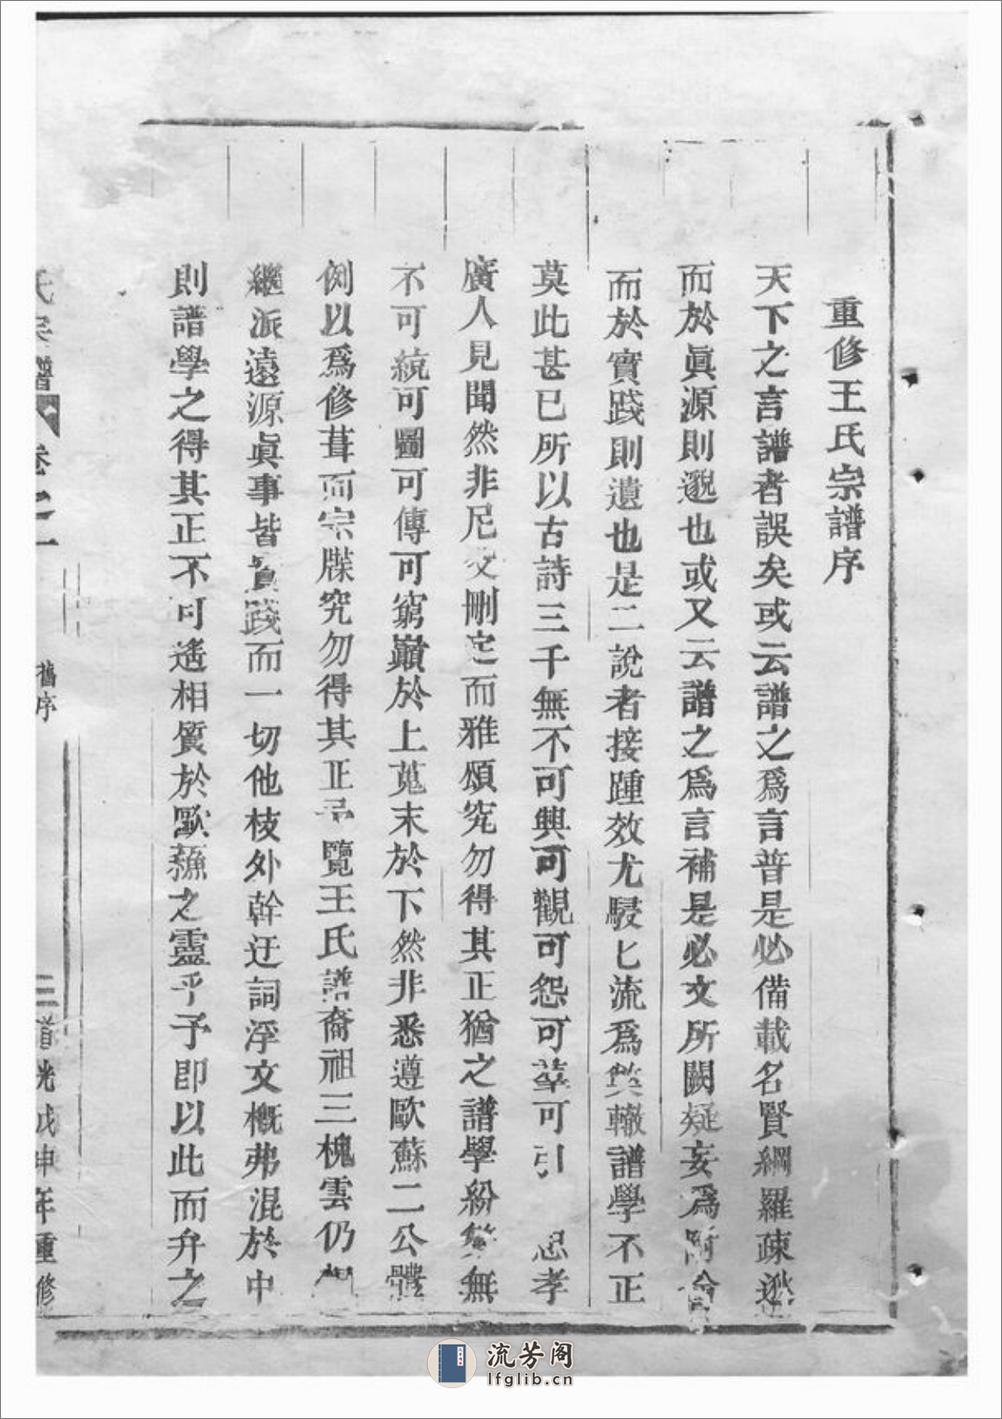 重修王氏宗譜序
天下之言譜者誤矣或云譜之爲言普是必備載名賢網羅疎逖
而於眞源則邈也或又云譜之爲言補是必文所闕疑妄爲附會
而於實踐則遺也是二說者接踵效尤駸匕流爲弊轍譜學不正
莫此甚已所以古詩三千無不可興可觀可怨可羣可引 忠孝
廣人見聞然非尼父刪定而雅頌究勿得其正猶之譜學紛繁無
不可統可圖可傳可窮巔於上蒐末於下然非悉遵歐蘇二公體
例以爲修葺而宗牒究勿得其正予覽王氏譜裔祖三槐雲仍相
繼派遠源眞事皆實踐而一切他枝外幹迂詞浮文槪弗混於中
則譜學之得其正不可遙相質於歐蘓之靈乎予卽以此而弁之
氏宗譜 卷之一 舊序 三 道光戊申年重修
流芳阁
lfglib.cn